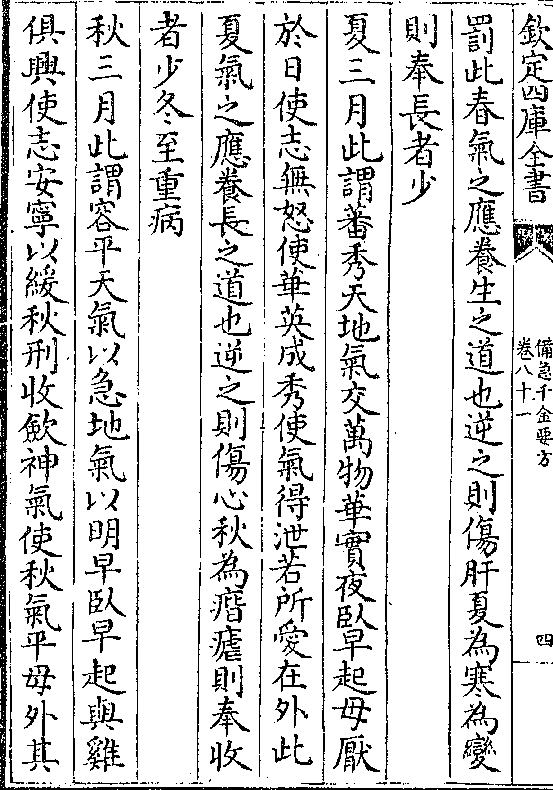 欽定四庫全書
備急千金要方
卷八十一
四
罰此春氣之應養生之道也逆之則傷肝夏為寒為變
則奉長者少
夏三月此謂蕃秀天地氣交萬物華實夜臥早起毋厭
於日使志無怒使華英成秀使氣得泄若所愛在外此
夏氣之應養長之道也逆之則傷心秋為痟瘧則奉收
者少冬至重病
秋三月此謂容平天氣以急地氣以明早臥早起與雞
俱興使志安寧以緩秋刑收斂神氣使秋氣平毋外其